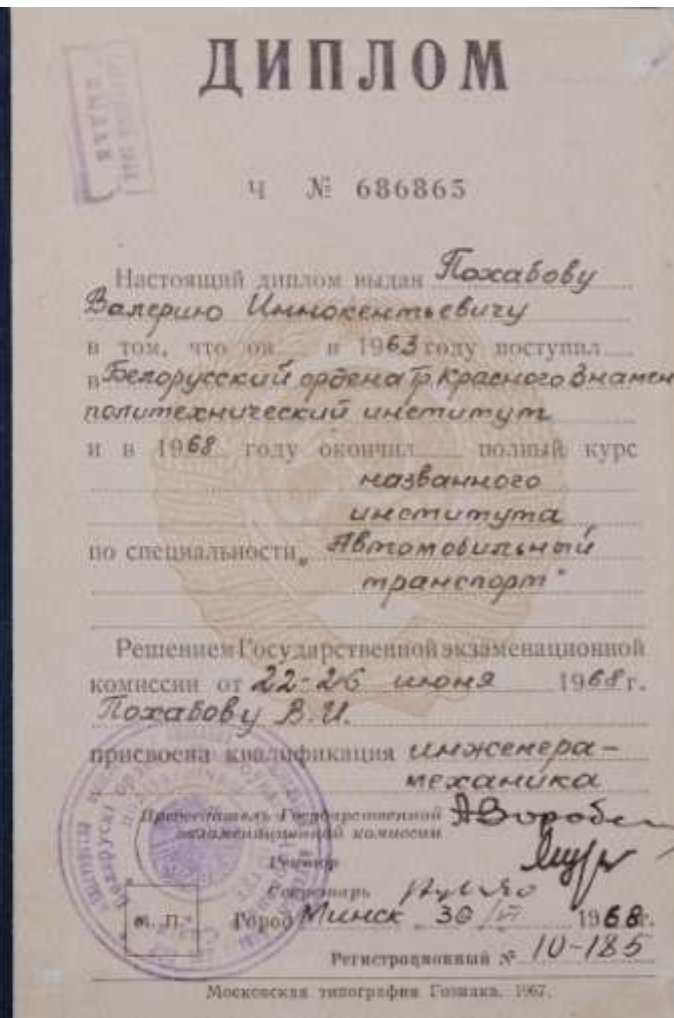 ДИПЛОМ
Ч № 686865
Настоящий диплом выдан Похабову
Валерию Иннокентьевичу
в том, что он в 1963 году поступил
в Белорусский ордена Тр. Красного Знамен
политехнический институт
и в 1968 году окончил полный курс
названного
института
по специальности „Автомобильный
транспорт"
Решением Государственной экзаменационной
комиссии от 22-26 июня 1968 г.
Похабову В.И.
присвоена квалификация инженера-
механика
Председатель Государственной
экзаменационной комиссии
Ректор
Секретарь
М. П. Город Минск 30/VI 1968 г.
Регистрационный № 10-185
Московская типография Гознака. 1967.